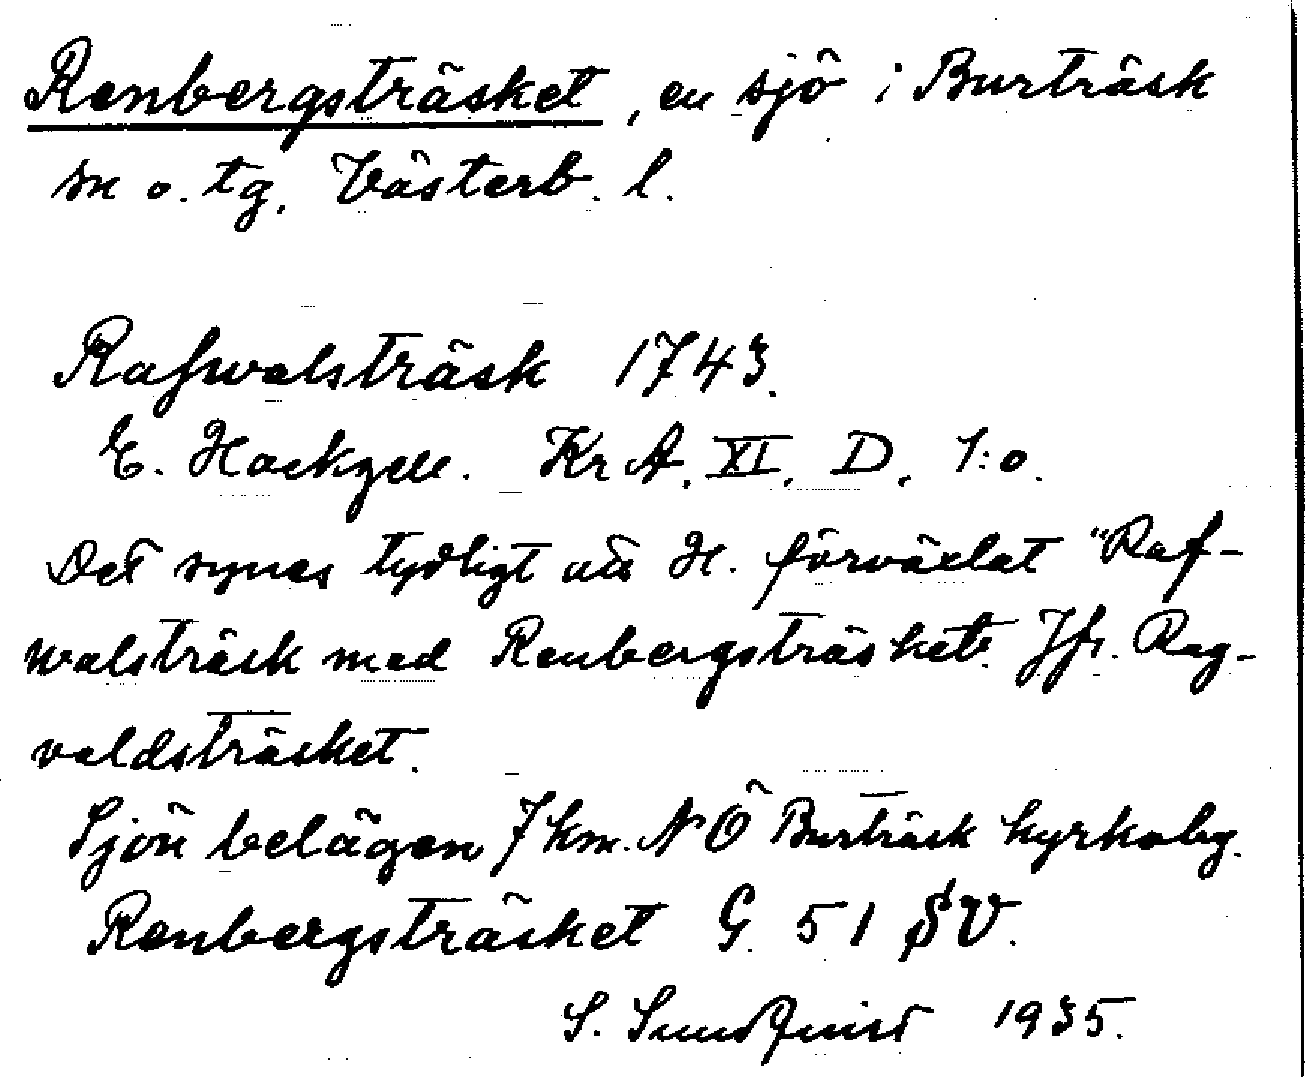 Renbergsträsket, en sjö i Burträsk
sn o. tg. Västerb. l.
Rafwalsträsk 1743.
E. Hackzell. KrA. XI. D. 1:o.
Det synes tydligt att H. förväxlat "Raf-
walsträsk med Renbergsträsket. Jfr. Rag-
valdsträsket.
Sjön belägen 7 km. NÖ Burträsk kyrkoby.
Renbergsträsket G. 51 SV.
S. Sundquist 1935.